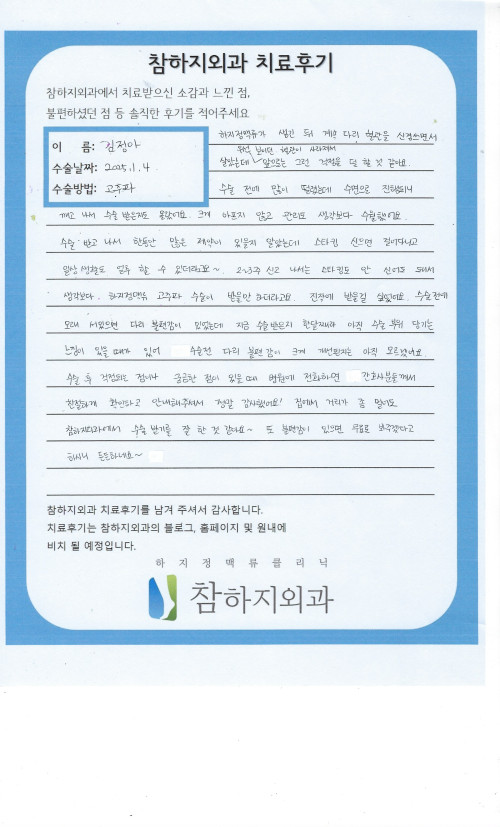 참하지외과 치료후기
참하지외과에서 치료받으신 소감과 느낀 점,
불편하셨던 점 등 솔직한 후기를 적어주세요
이 름: 김정아
수술날짜: 2025.1.4
수술방법: 고주파
하지정맥류가 생긴 뒤 계속 다리 혈관을 신경쓰면서
살았는데 앞으로는 그런 걱정을 덜 할 것 같아요.
수술 전에 많이 떨렸는데 수면으로 진행되니
깨고 나서 수술 받은지도 몰랐어요. 크게 아프지 않고 관리도 생각보다 수월했어요.
수술 받고 나서 한동안 많은 제약이 있을지 알았는데 스타킹 신으면 걸어다니고
일상생활도 모두 할 수 있더라고요~ 2~3주 신고 나서는 스타킹도 안 신어도 되서
생각보다 하지정맥류 고주파 수술이 받을만 하더라고요. 진작에 받을걸 싶었어요. 수술전에
오래 서있으면 다리 불편감이 있었는데 지금 수술 받은지 한달째라 아직 수술 부위 당기는
느낌이 있을 때가 있어 수술전 다리 불편감이 크게 개선됐는지는 아직 모르겠어요.
수술 후 걱정되는 점이나 궁금한 점이 있을 때 병원에 전화하면 간호사분들께서
친절하게 확인하고 안내해주셔서 정말 감사했어요! 집에서 거리가 좀 멀어도
참하지외과에서 수술 받기를 잘 한 것 같아요~ 또 불편감이 있으면 무료로 봐주겠다고
하시니 든든하네요~
참하지외과 치료후기를 남겨 주셔서 감사합니다.
치료후기는 참하지외과의 블로그, 홈페이지 및 원내에
비치 될 예정입니다.
하지정맥류클리닉
참하지외과